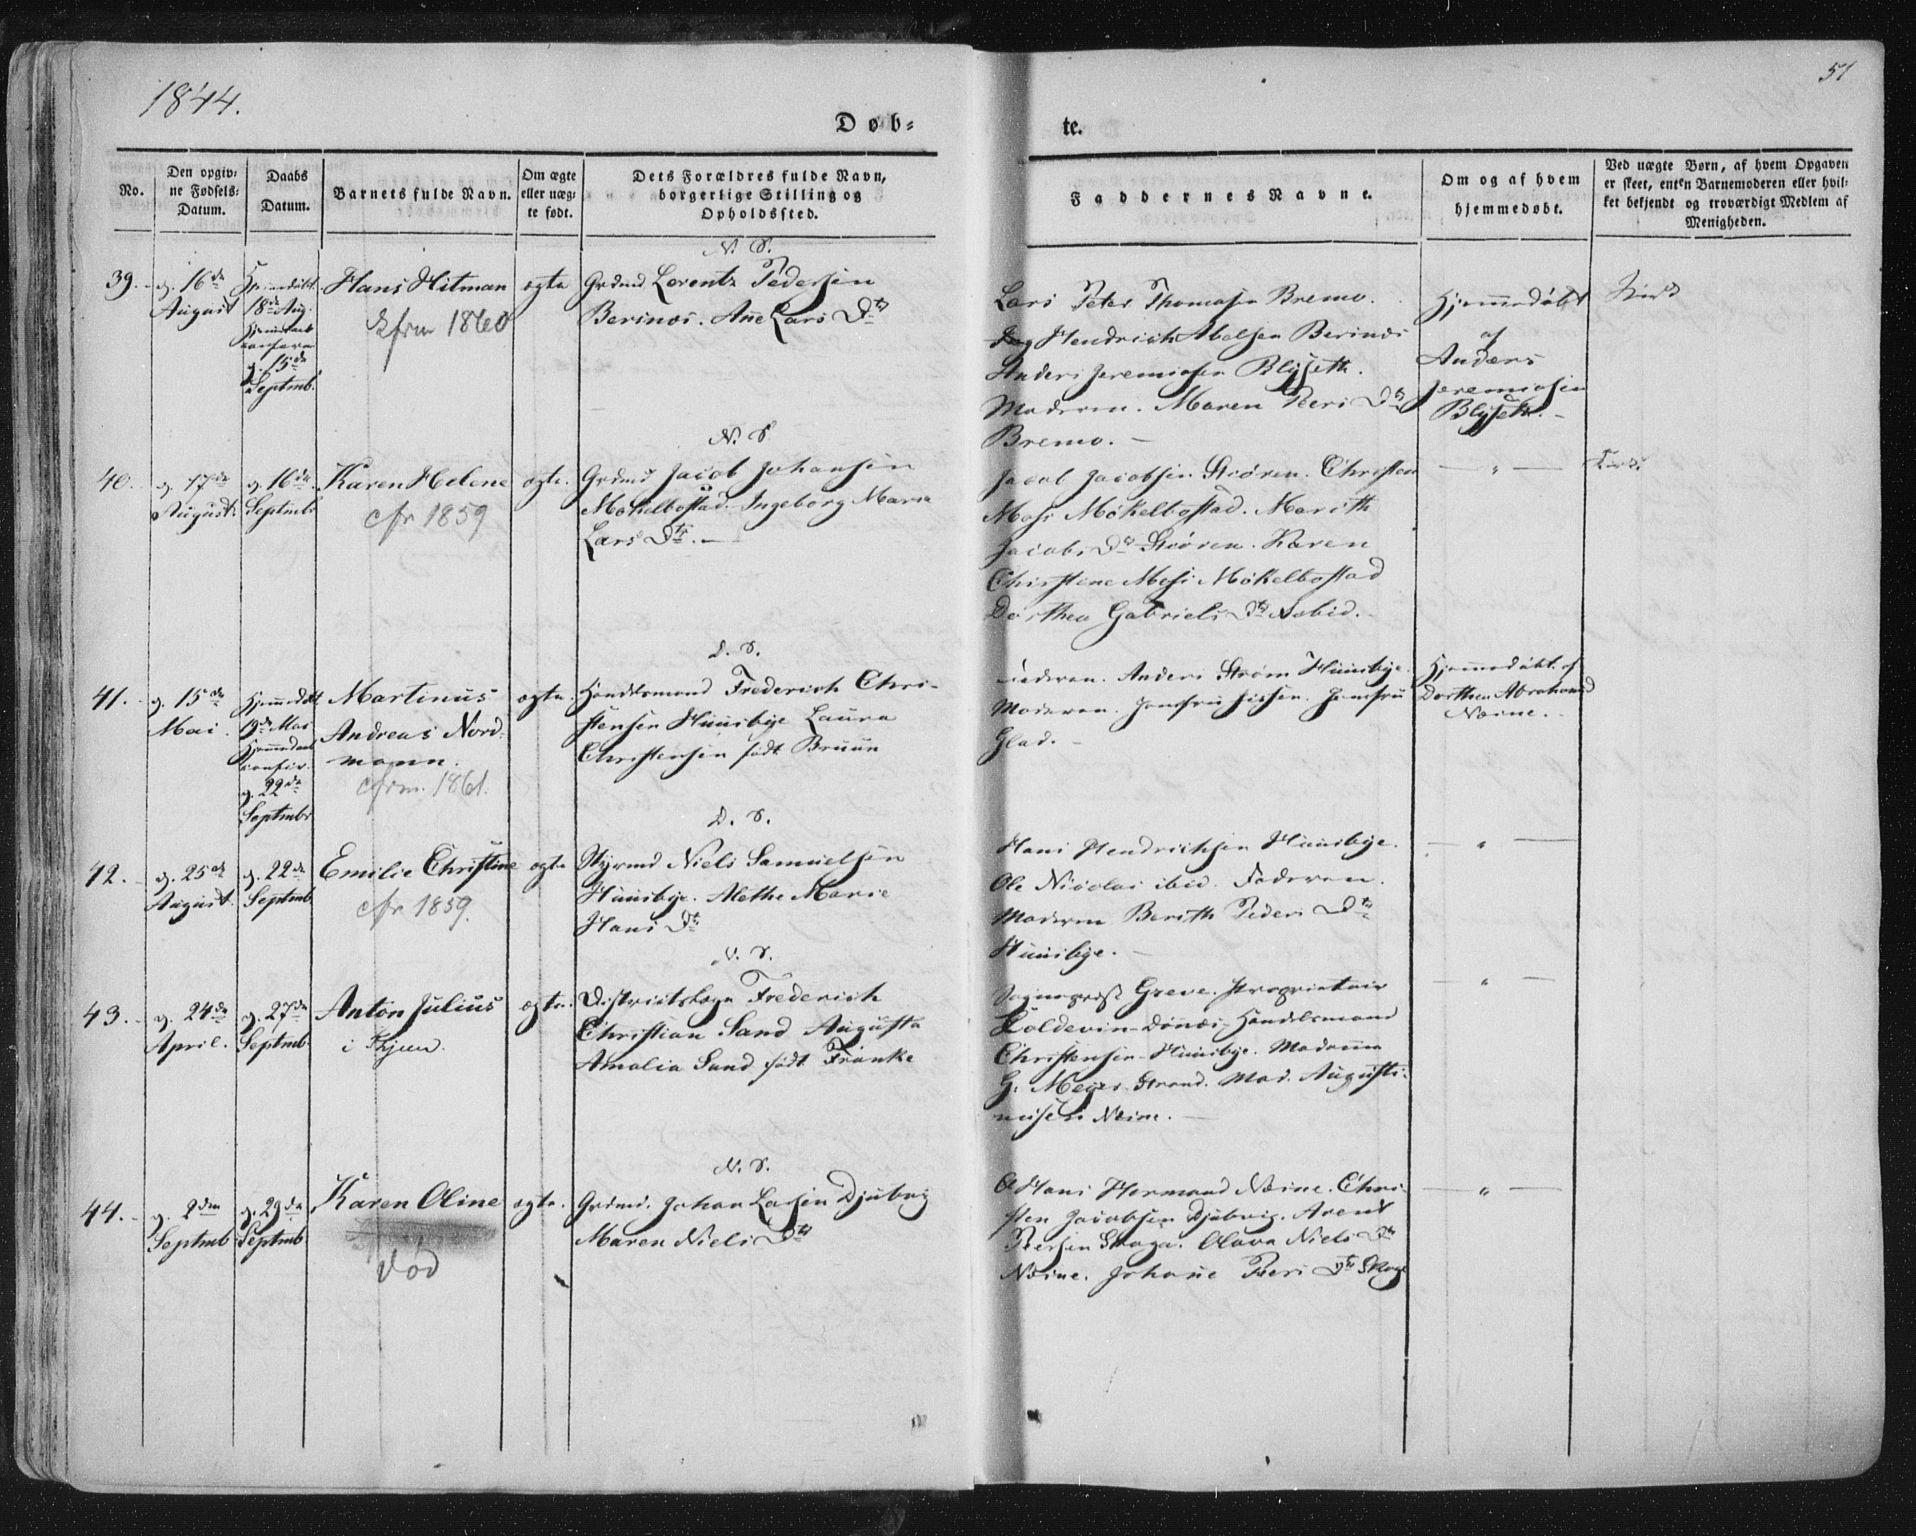 1844.
51
Døb-
te.
No.
Den opgiv-
ne Fødsels-
Datum.
Daabs
Datum.
Barnets fulde Navn.
Om ægte
eller uæg-
te født.
Dets Forældres fulde Navn,
borgerlige Stilling og
Opholdssted.
Faddernes Navne.
Om og af hvem
hjemmedøbt.
Ved uægte Børn, af hvem Opgaven
er skeet, enten Barnemoderen eller hvil-
ket bekjendt og troværdigt Medlem af
Menigheden.
N. S.
39.
d. 16de
August
Hjemmedøbt
18de Aug.
d. 15de
Septmb.
Hans Hitman
cfrm 1860
ægte
Grdmd Lorentz Pedersen
Berinds. Ane Lars Dtr
Lars Peter Thomasen Bremo.
Hendrich Abelsen Berinds
Anders Jeremiasen Blyseth.
Maderen. Maren Peers Dtr
Bremo. —
Hjemmedøbt
af
Anders
Jeremiasen
Blyseth. —
N. S.
40.
d. 17de
August.
d. 16de
Septmb.
Karen Helene
cfr 1859
ægte.
Grdmd Jacob Johansen
Møkelbostad. Ingeborg Maria
Lars Dtr. —
Jacob Jacobsen Skiören. Christen
Mosi Møkelbostad. Marith
Jacobs Dtr Skiören. Karen
Christine Mosi Møkelbostad
Dorthea Gabriels Dtr Nabid.
— " —
D. S.
41.
d. 15de
Mai.
Hjemmedøbt
19de Mai
d. 22de
Septmbr
Martinus
Andreas Nord-
mann.
cfrm. 1861.
ægte.
Handelsmand Frederich Chri-
stensen Huusbye Laura
Christensen født Bruun
Faderen. Anders Strøm Huusbye.
Maderen. Jomfru Jessen. Jomfru
Glad. —
Hjemmedøbt af
Dorthea Abrahamsd
Næine. —
D. S.
42.
d. 25de
August.
d. 22de
Septmb.
Emilie Christine
cfr 1859.
ægte
Styrmd Niels Samuelsen
Huusbye. Alethe Marie
Hans Dtr
Hans Hendrichsen Huusbye.
Ole Nicolai ibid. Faderen.
Maderen Berith Peders Dtr
Huusbye. —
— " —
N. S.
43.
d. 24de
April.
d. 27de
Septmb.
Anton Julius
i Thjem.
ægte.
Districtslæge Frederich
Christian Sand Augusta
Amalia Sand født Franke
Sogneprest Greve. Proprietair
Coldevin-Dønnes. Handelsmand
Christensen-Huusbye. Madame
G. Meyer Strand. Mad. Augusti-
nusen Næine. —
— " —
N. S.
44.
d. 2den
Septmb
d. 29de
Septmb
Karen Oline
død
ægte.
Grdmd. Johan Larsen Djubvig
Maren Niels Dtr
Hans Hermand Næine. Chri-
sten Jacobsen Djubvig. Arent
Peersen Skaga. Olava Niels Dtr
Næine. Johane Peers Dtr Skage
— " —